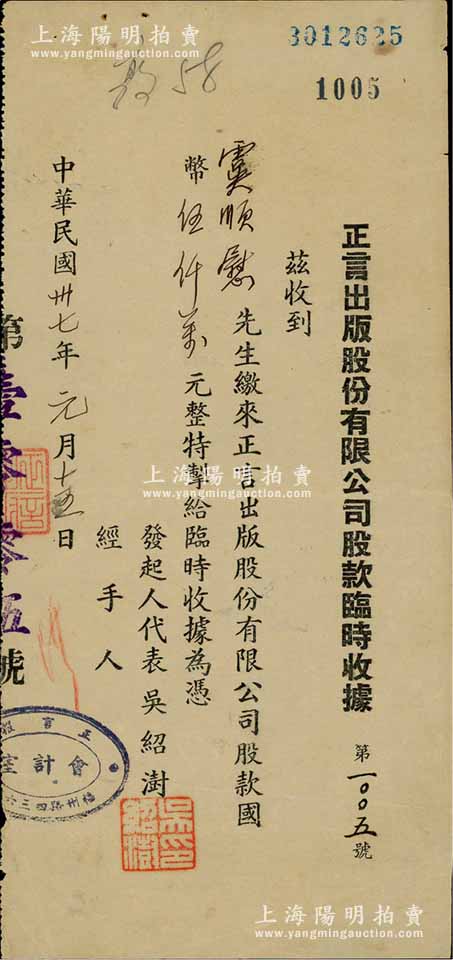 上海陽明拍賣
www.yangmingauction.com
3012625
1005
58
正言出版股份有限公司股款臨時收據
第一００五號
茲收到
虞順慰先生繳來正言出版股份有限公司股款國
幣伍仟萬元整特掣給臨時收據為憑
發起人代表吳紹澍
經手人
中華民國卅七年元月十五日
第壹零零伍號
正言報
會計室
福州路四三
吳紹澍印
上海陽明拍賣
www.yangmingauction.com
上海陽明拍賣
www.yangmingauction.com